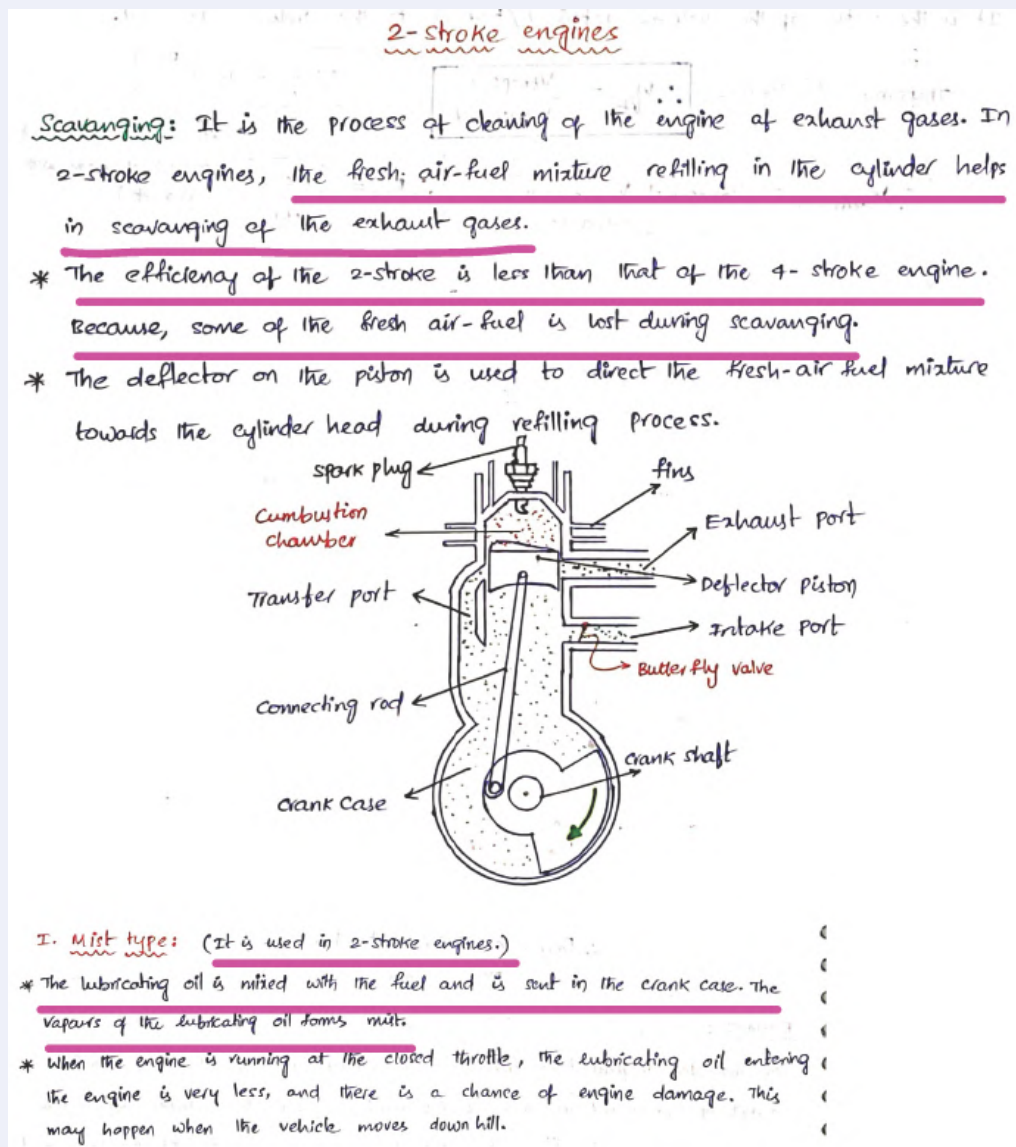 2-stroke engines
Scavanging: It is the process of cleaning of the engine of exhaust gases. In
2-stroke engines, the fresh; air-fuel mixture refilling in the cylinder helps
in scavanging of the exhaust gases.
* The efficienay of the 2-stroke is less than that of the 4- stroke engine.
Because, some of the fresh air-fuel is lost during scavanging.
* The deflector on the piston is used to direct the fresh-air fuel mixture
towards the cylinder head during refilling process.
spark plug
fins
Cumbustion
chamber
Exhaust port
Deflector piston
Transfer port
Intake port
Butterfly valve
Connecting rod
crank shaft
crank case
I. Mist type: (It is used in 2-stroke engines.)
* The lubricating oil is mixed with the fuel and is sent in the crank case. The
vapours of the lubricating oil forms mist.
* When the engine is running at the closed throttle, the lubricating oil entering
the engine is very less, and there is a chance of engine damage. This
may happen when the vehicle moves down hill.